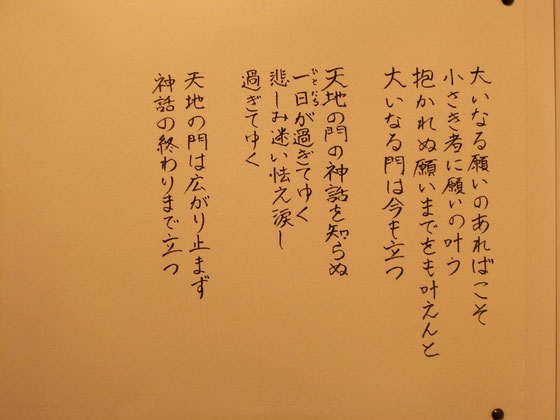 大いなる願いのあればこそ
小さき者に願いの叶う
抱かれぬ願いまでをも叶えんと
大いなる門は今も立つ
天地の門の神話を知らぬ
一日が過ぎてゆく
悲しみ迷い怯え涙し
過ぎてゆく
天地の門は広がり止まず
神話の終わりまで立つ